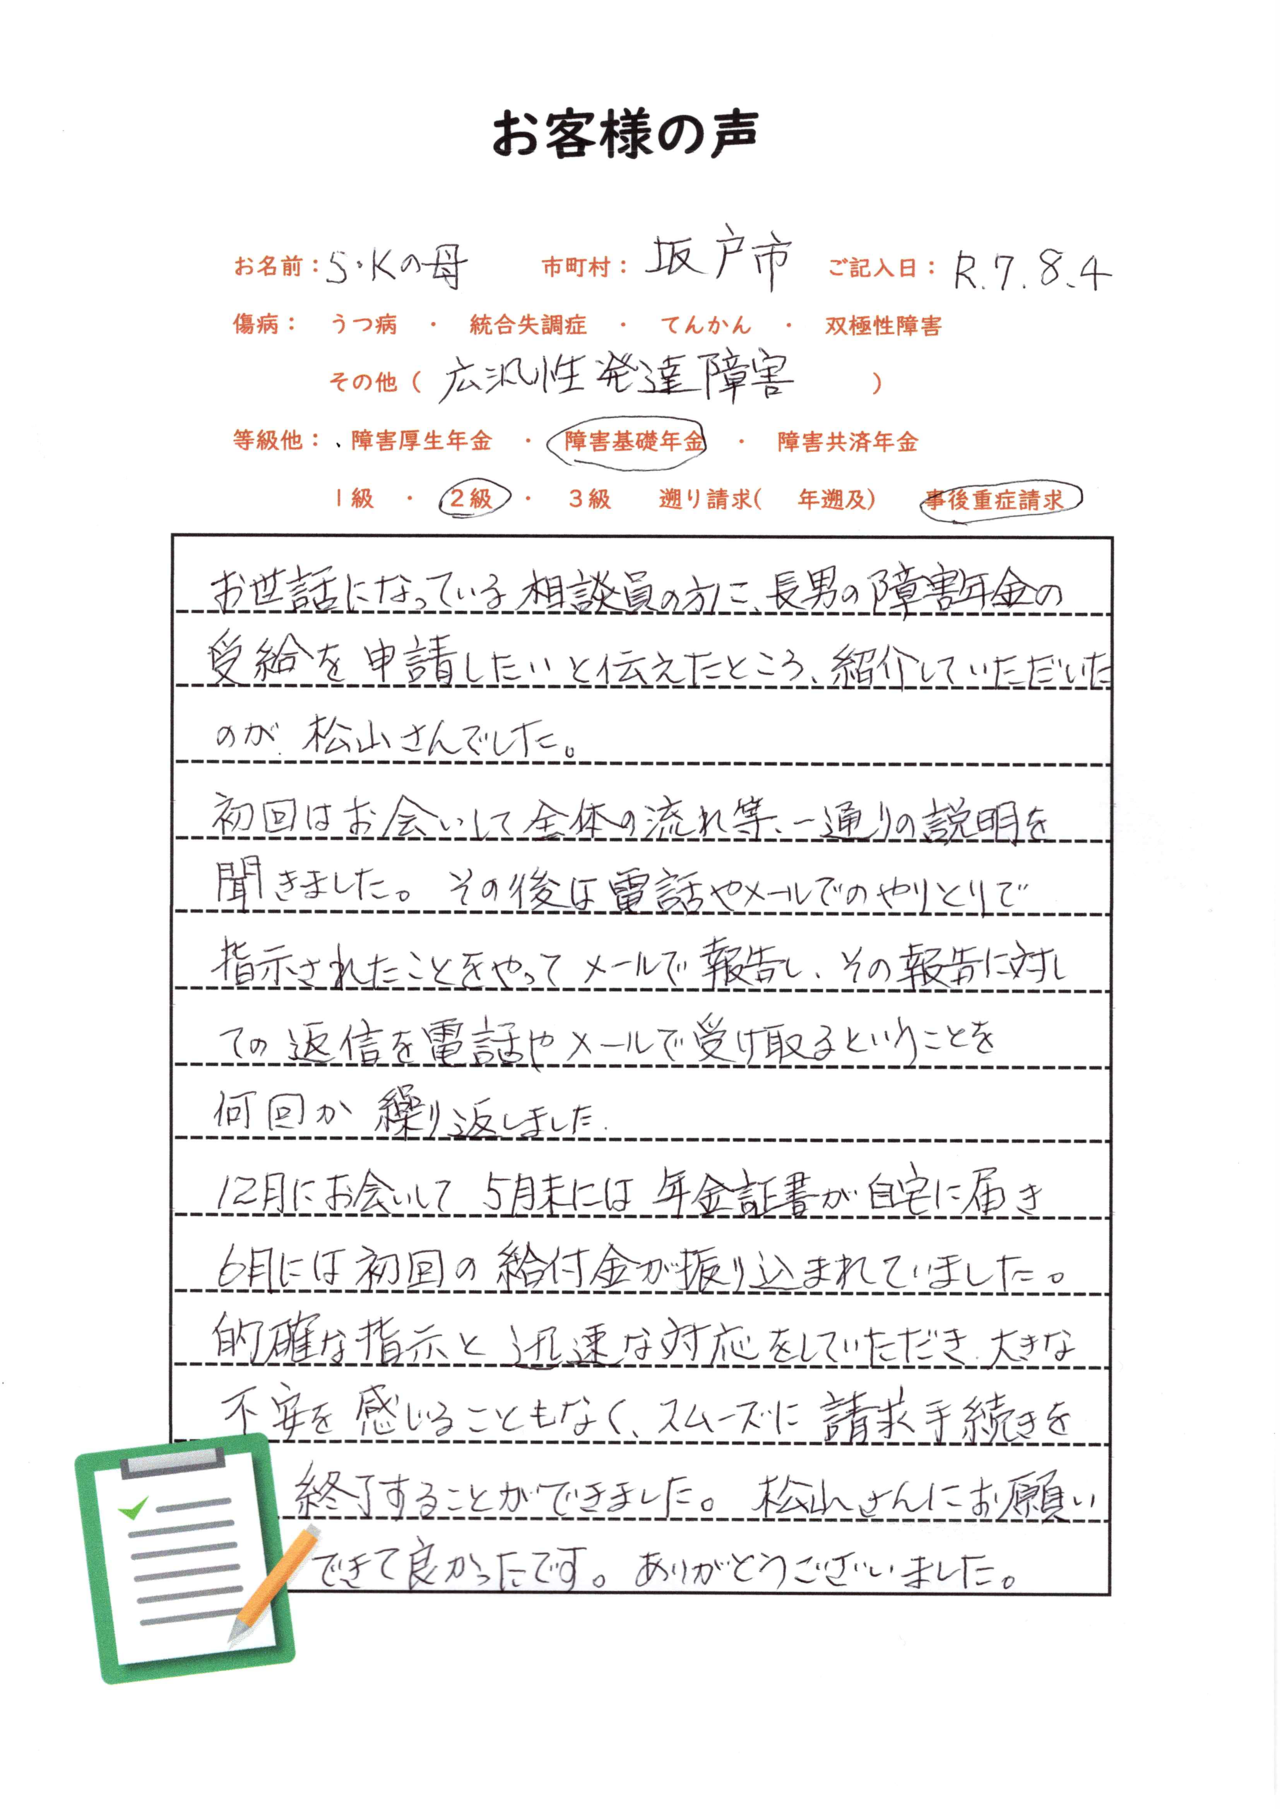 お客様の声
お名前：S・Kの母　市町村：坂戸市　ご記入日：R.7.8.4
傷病：　うつ病　・　統合失調症　・　てんかん　・　双極性障害
その他（広汎性発達障害）
等級他：、障害厚生年金　・　障害基礎年金　・　障害共済年金
1級　・　2級　・　3級　遡り請求(　年遡及)　事後重症請求
お世話になっている相談員の方に、長男の障害年金の
受給を申請したいと伝えたところ、紹介していただいた
のが松山さんでした。
初回はお会いして全体の流れ等、一通りの説明を
聞きました。その後は電話やメールでのやりとりで
指示されたことをやってメールで報告し、その報告に対し
ての返信を電話やメールで受け取るということを
何回か繰り返しました.
12月にお会いして5月末には年金証書が自宅に届き
6月には初回の給付金が振り込まれていました。
的確な指示と迅速な対応をしていただき、大きな
不安を感じることもなく、スムーズに請求手続きを
終了することができました。松山さんにお願い
できて良かったです。ありがとうございました。